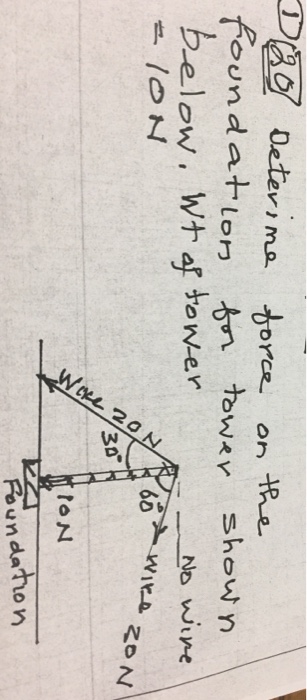 ① 20 Deterime force on the
foundation for tower shown
below. Wt of tower
= 10N
No wire
60° wire 20N
Wire 20N
30°
10N
Foundation